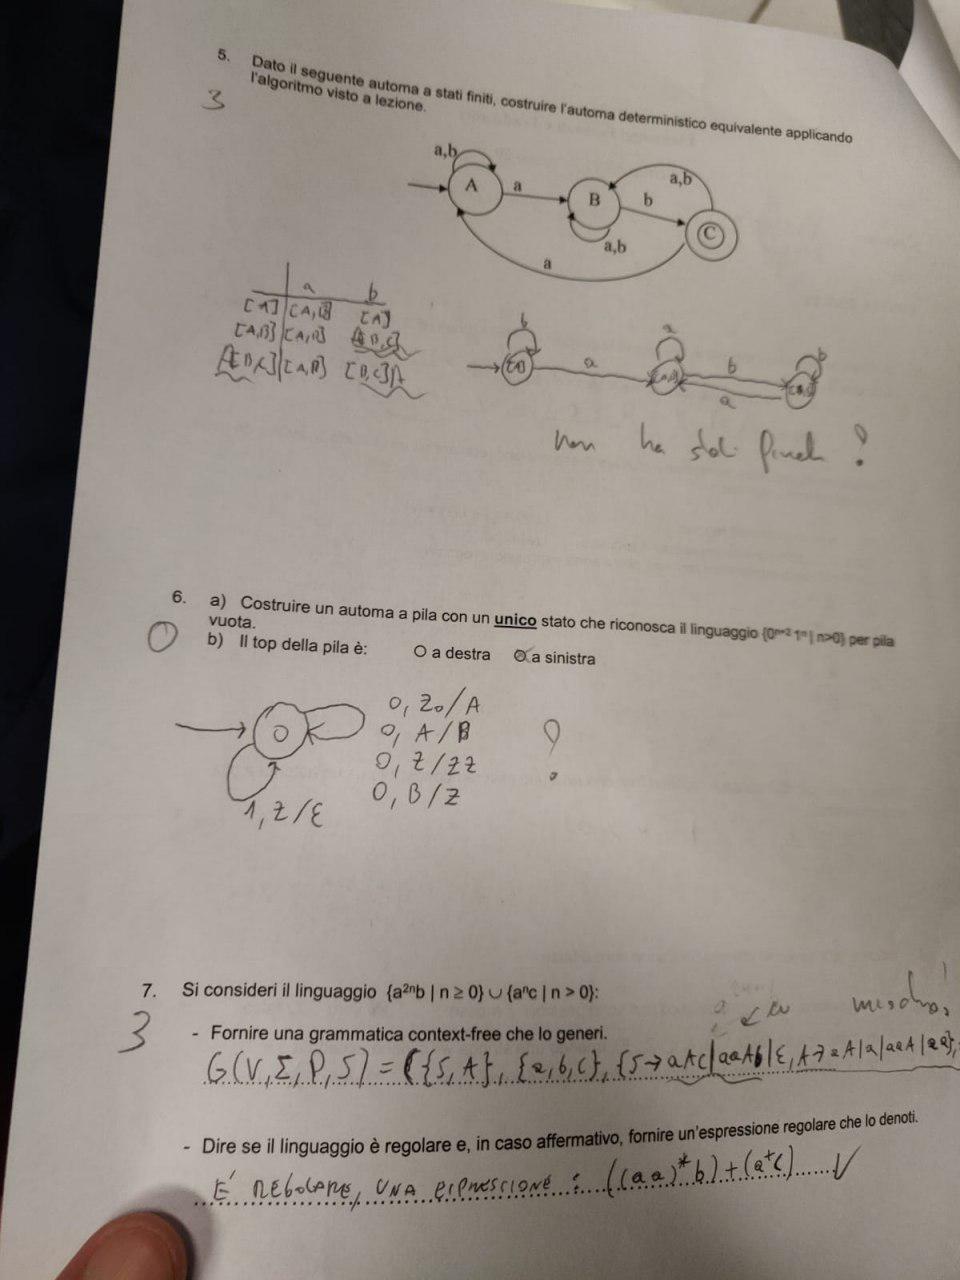 5. Dato il seguente automa a stati finiti, costruire l'automa deterministico equivalente applicando
l'algoritmo visto a lezione.
3
a,b
A
a
B
b
a,b
C
a,b
a
a b
[A] [A,B] [A]
[A,B] [A,B] [B,C]
[B,C] [A,B] [B,C]
b
[A]
a
a
b
a
b
non ha stati finali ?
6. a) Costruire un automa a pila con un unico stato che riconosca il linguaggio {0ⁿ⁺² 1ⁿ | n>0} per pila
vuota.
b) Il top della pila è: O a destra O a sinistra
1
0
0, Z₀/A
0, A/B
0, Z/ZZ
0, B/Z
?
1, Z/ε
7. Si consideri il linguaggio {a²ⁿb | n ≥ 0} ∪ {aⁿc | n > 0}:
3
- Fornire una grammatica context-free che lo generi.
G(V,Σ,P,S) = ({S,A}, {a,b,c}, {S→aAc|aaAb|ε, A→aA|a|aaA|aa},
- Dire se il linguaggio è regolare e, in caso affermativo, fornire un'espressione regolare che lo denoti.
É REGOLARE, UNA ESPRESSIONE : ((aa)*b)+(a⁺c)